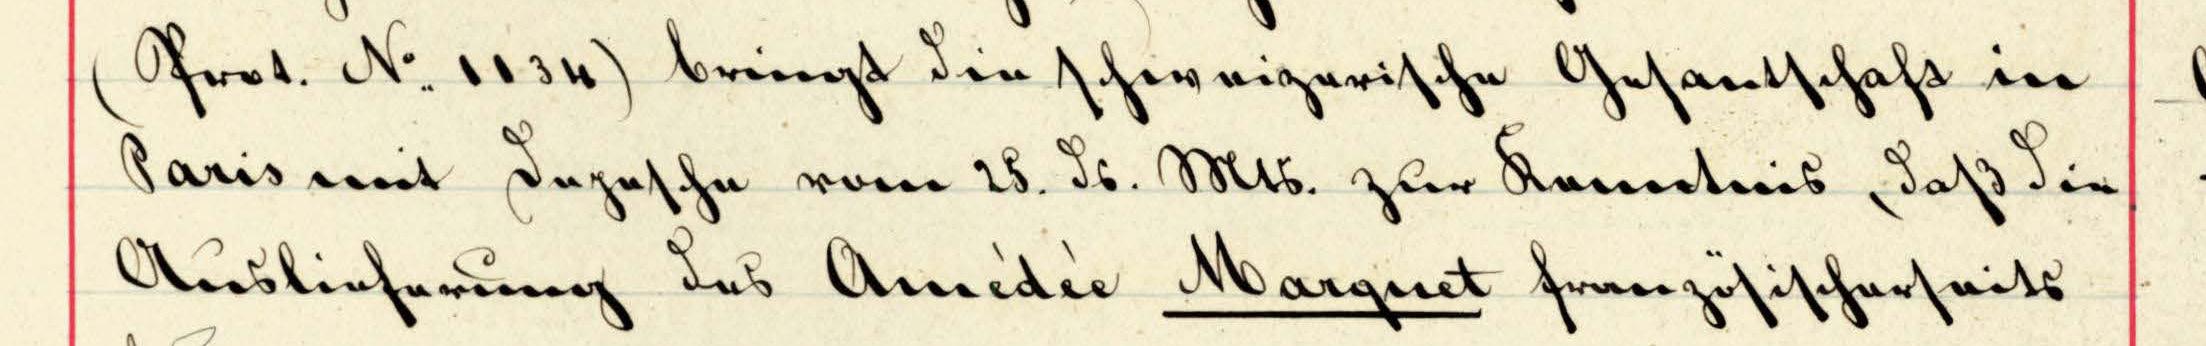 (Prot. No. 1134) bringt die schweizerische Gesantschaft in
Paris mit Depesche vom 25. ds. Mts. zur Kenntnis, daß die
Auslieferung des Amédée Marquet französischerseits